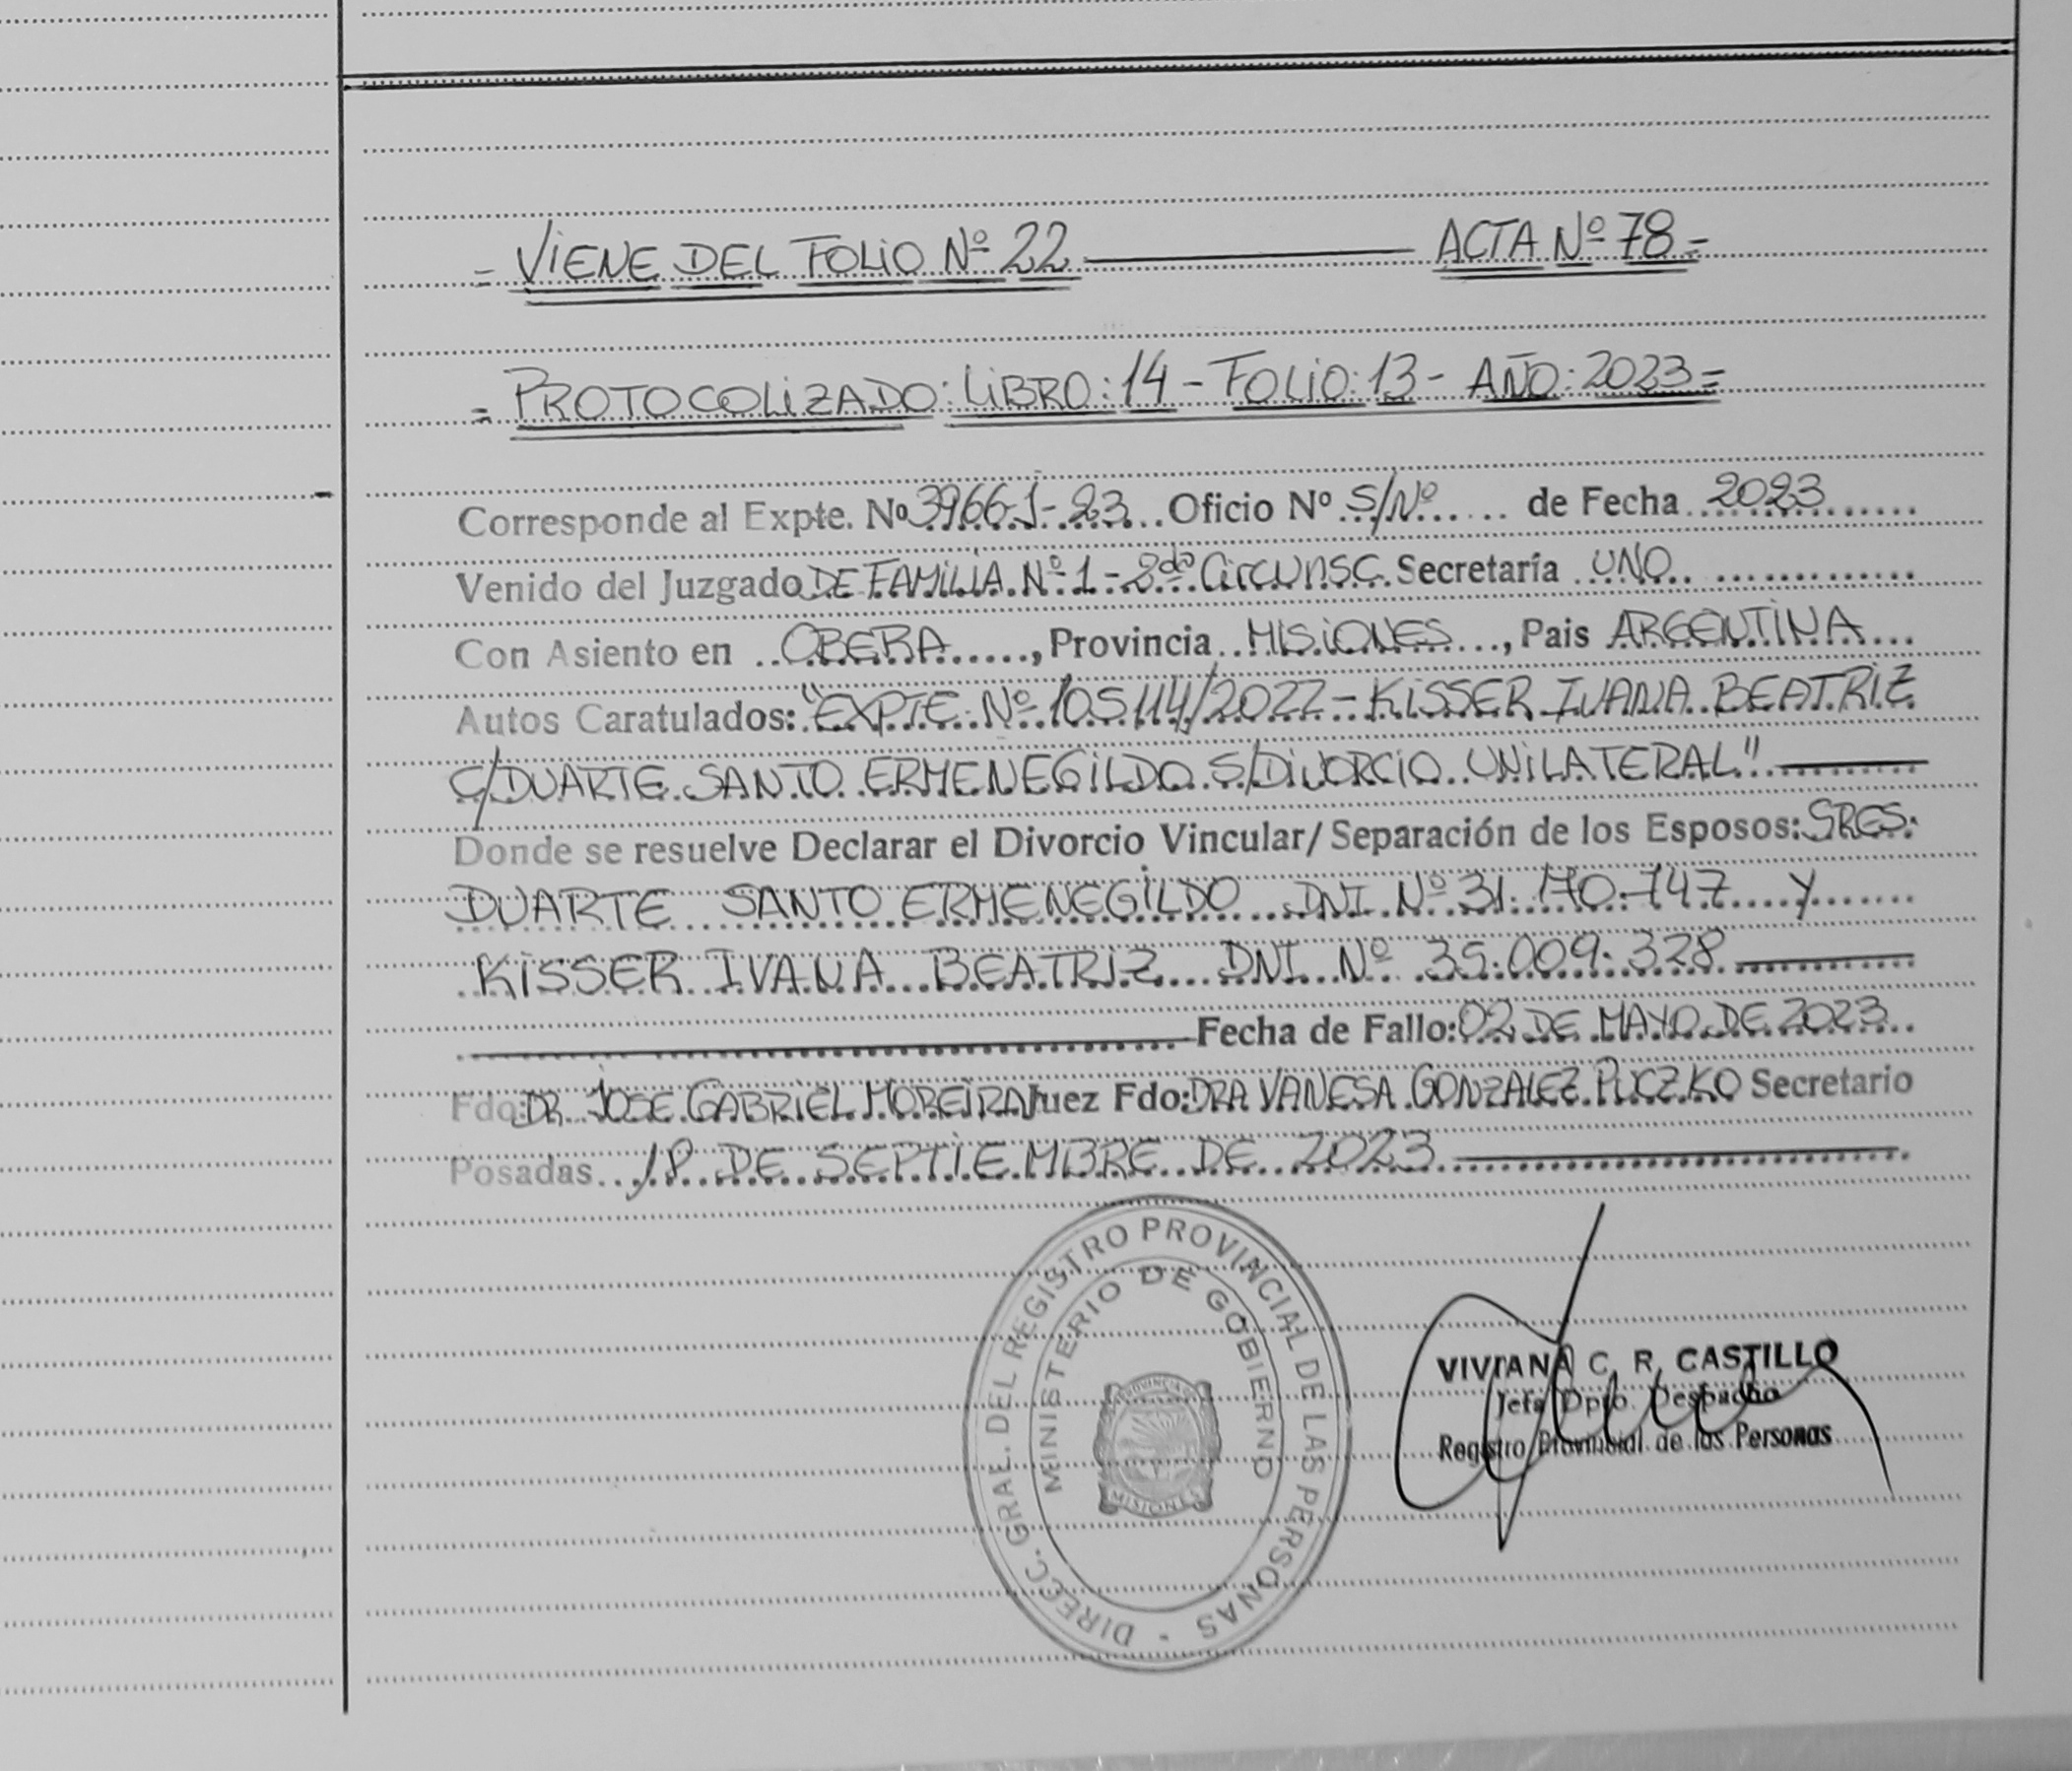 = VIENE DEL FOLIO Nº 22 ACTA Nº 78 =
= PROTOCOLIZADO: LIBRO: 14 - FOLIO: 13 - AÑO: 2023 =
Corresponde al Expte. Nº 3966-J-23 Oficio Nº S/Nº de Fecha 2023
Venido del Juzgado DE FAMILIA Nº 1 - 2da CIRCUNSC. Secretaría UNO
Con Asiento en OBERA, Provincia MISIONES, Pais ARGENTINA
Autos Caratulados: "EXPTE. Nº 105114/2022 - KISSER IVANA BEATRIZ
C/DUARTE SANTO ERMENEGILDO S/DIVORCIO UNILATERAL"
Donde se resuelve Declarar el Divorcio Vincular/Separación de los Esposos: SRES.
DUARTE SANTO ERMENEGILDO DNI Nº 31.170.747 y
KISSER IVANA BEATRIZ DNI Nº 35.009.328
Fecha de Fallo: 02 DE MAYO DE 2023
Fdo: DR. JOSE GABRIEL MOREIRA Juez Fdo: DRA VANESA GONZALEZ PUCZKO Secretario
Posadas, 18 DE SEPTIEMBRE DE 2023
DIRECC. GRAL. DEL REGISTRO PROVINCIAL DE LAS PERSONAS -
MINISTERIO DE GOBIERNO
PROVINCIA DE
MISIONES
VIVIANA C. R. CASTILLO
Jefa Dpto. Despacho
Registro Provincial de las Personas